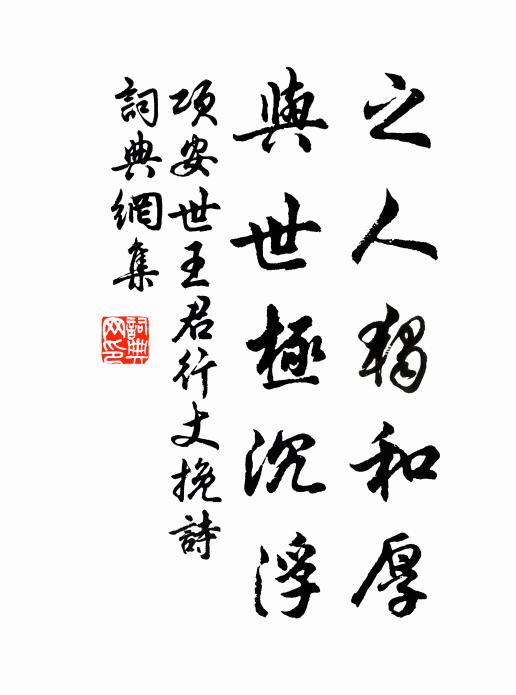 之人獨和厚
與世極沉浮
項安世王君行丈挽詩
詞典網集
詞典
网印